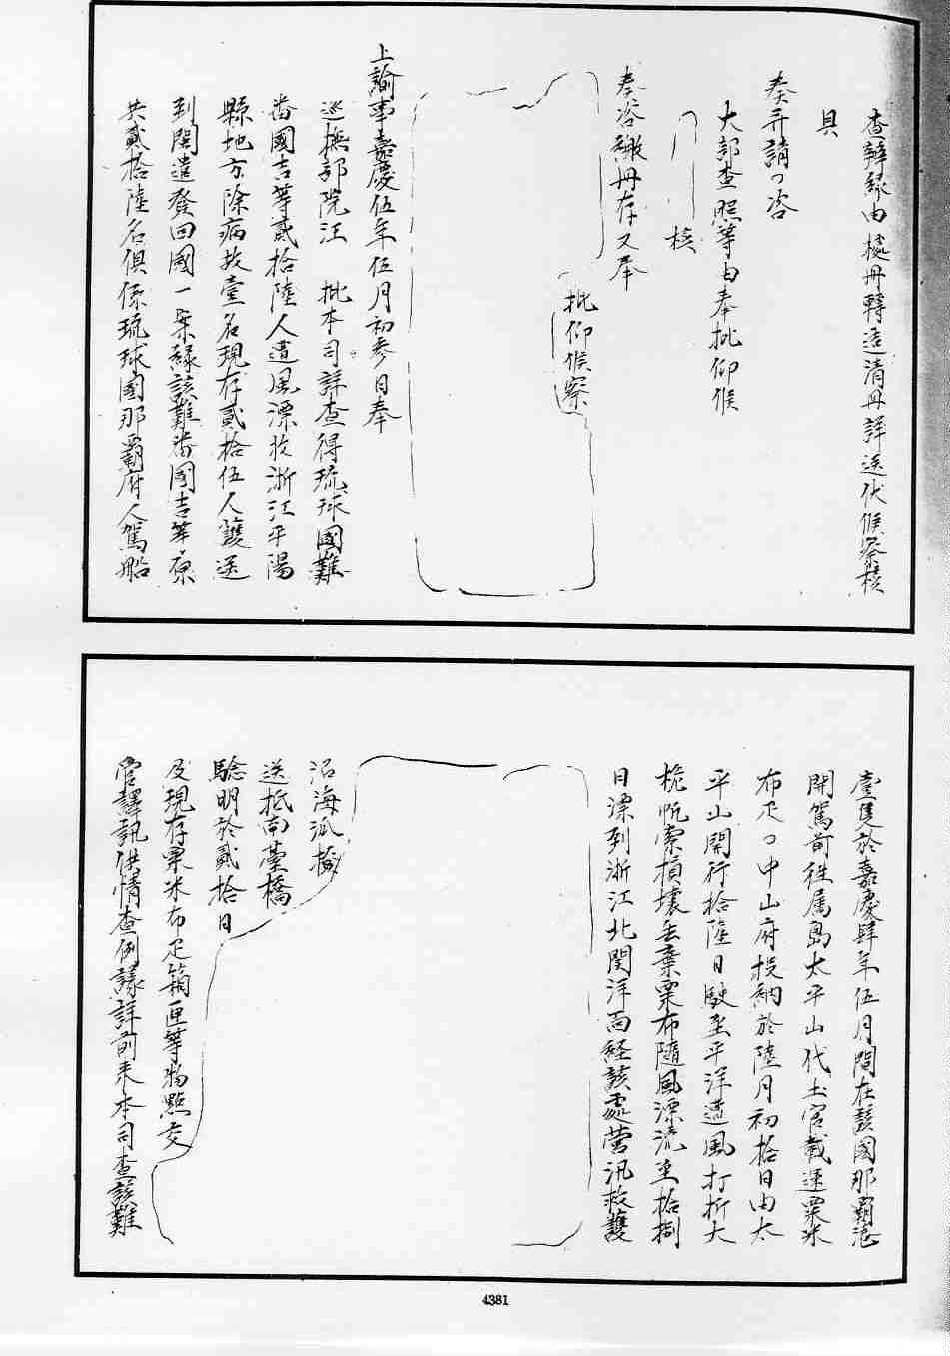 查辦緣由擬冊轉造清冊詳送伏候察核
具
奏弄請〻咨
大部查照等由奉批仰候
核
奏咨繳冊存又奉
批仰候察
上諭事嘉慶伍年伍月初參日奉
巡撫部院汪 批本司詳查得琉球國難
番國吉等貳拾陸人遭風漂收浙江平陽
縣地方除病故壹名現存貳拾伍人護送
到閩遣發回國一案緣該難番國吉等原
共貳拾陸名俱係琉球國那霸府人駕船
壹隻於嘉慶肆年伍月間在該國那霸港
開駕前往属島太平山代土官載運粟米
布疋〻中山府投納於陸月初拾日由太
平山開行拾陸日駛至平洋遭風打折大
桅帆索損壞丟棄粟布隨風漂流至拾捌
日漂到浙江北関洋面経該處營汛救護
沿海派撥
送抵南臺橋
驗明於貳拾日
及現存粟米布疋箱匣等物點交
官譯訊供情查例議詳前来本司查該難
4381